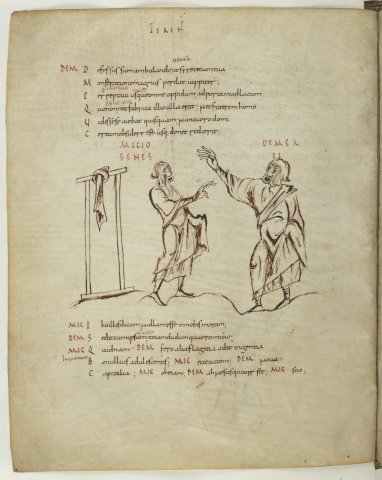 TEREN
DEM D efessus sum ambulando ut syre te cum tua
M onstratione magnus perdat iuppiter;
P erreptavi usque omne oppidum ad portam ad lacum
Q uo non neque fabrica illic ulla erat; nec fratrem homo
V idisse se aiebat quisquam nunc vero domi
C ertum obsidere est usque donec redierit;
MICIO DEMEA
SENES
MIC I bo illis dicam nullam esse in nobis moram;
DEM S ed eccum ipsum te iam dudum quaero micio
MIC Q uidnam DEM fero alia flagitia ad te ingentia
B oni illius adulescentis; MIC ecce autem; DEM nova
C apitalia; MIC ohe iam; DEM ah nescis qui vir sit; MIC scio;